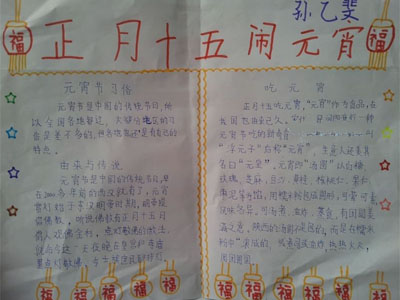 孙乙斐
福
正月十五闹元宵
福
元宵节习俗
元宵节是中国的传统节日,所
以全国各地都过。大部分地区的习
俗是差不多的,但各地也还是有自己的
特点。
由来与传说
元宵节是中国的传统节日,早
在2000多年前的西汉就有了,元宵
赏灯始于东汉明帝时期,明帝提
倡佛教,听说佛教有正月十五日
僧人观佛舍利,点灯敬佛的做法,
就命令这一天夜晚在皇宫和寺庙
里点灯敬佛,令士族庶民都挂灯
吃元宵
正月十五吃元宵,“元宵”作为食品,在
我国也由来已久。宋代,民间即流行一种
元宵节吃的新奇食
“浮元子”后称“元宵”,生意人还美其
名曰“元宝”。元宵即“汤圆”以白糖、
玫瑰、芝麻、豆沙、黄桂、核桃仁、果仁、
枣泥等为馅,用糯米粉包成圆形,可荤可素
风味各异。可汤煮、油炸、蒸食,有团圆美
满之意。陕西的汤圆不是包的,而是在糯米
粉中“滚”成的,或煮司或油炸,热热火火,
团团圆圆。
福 福 福 福 福 福